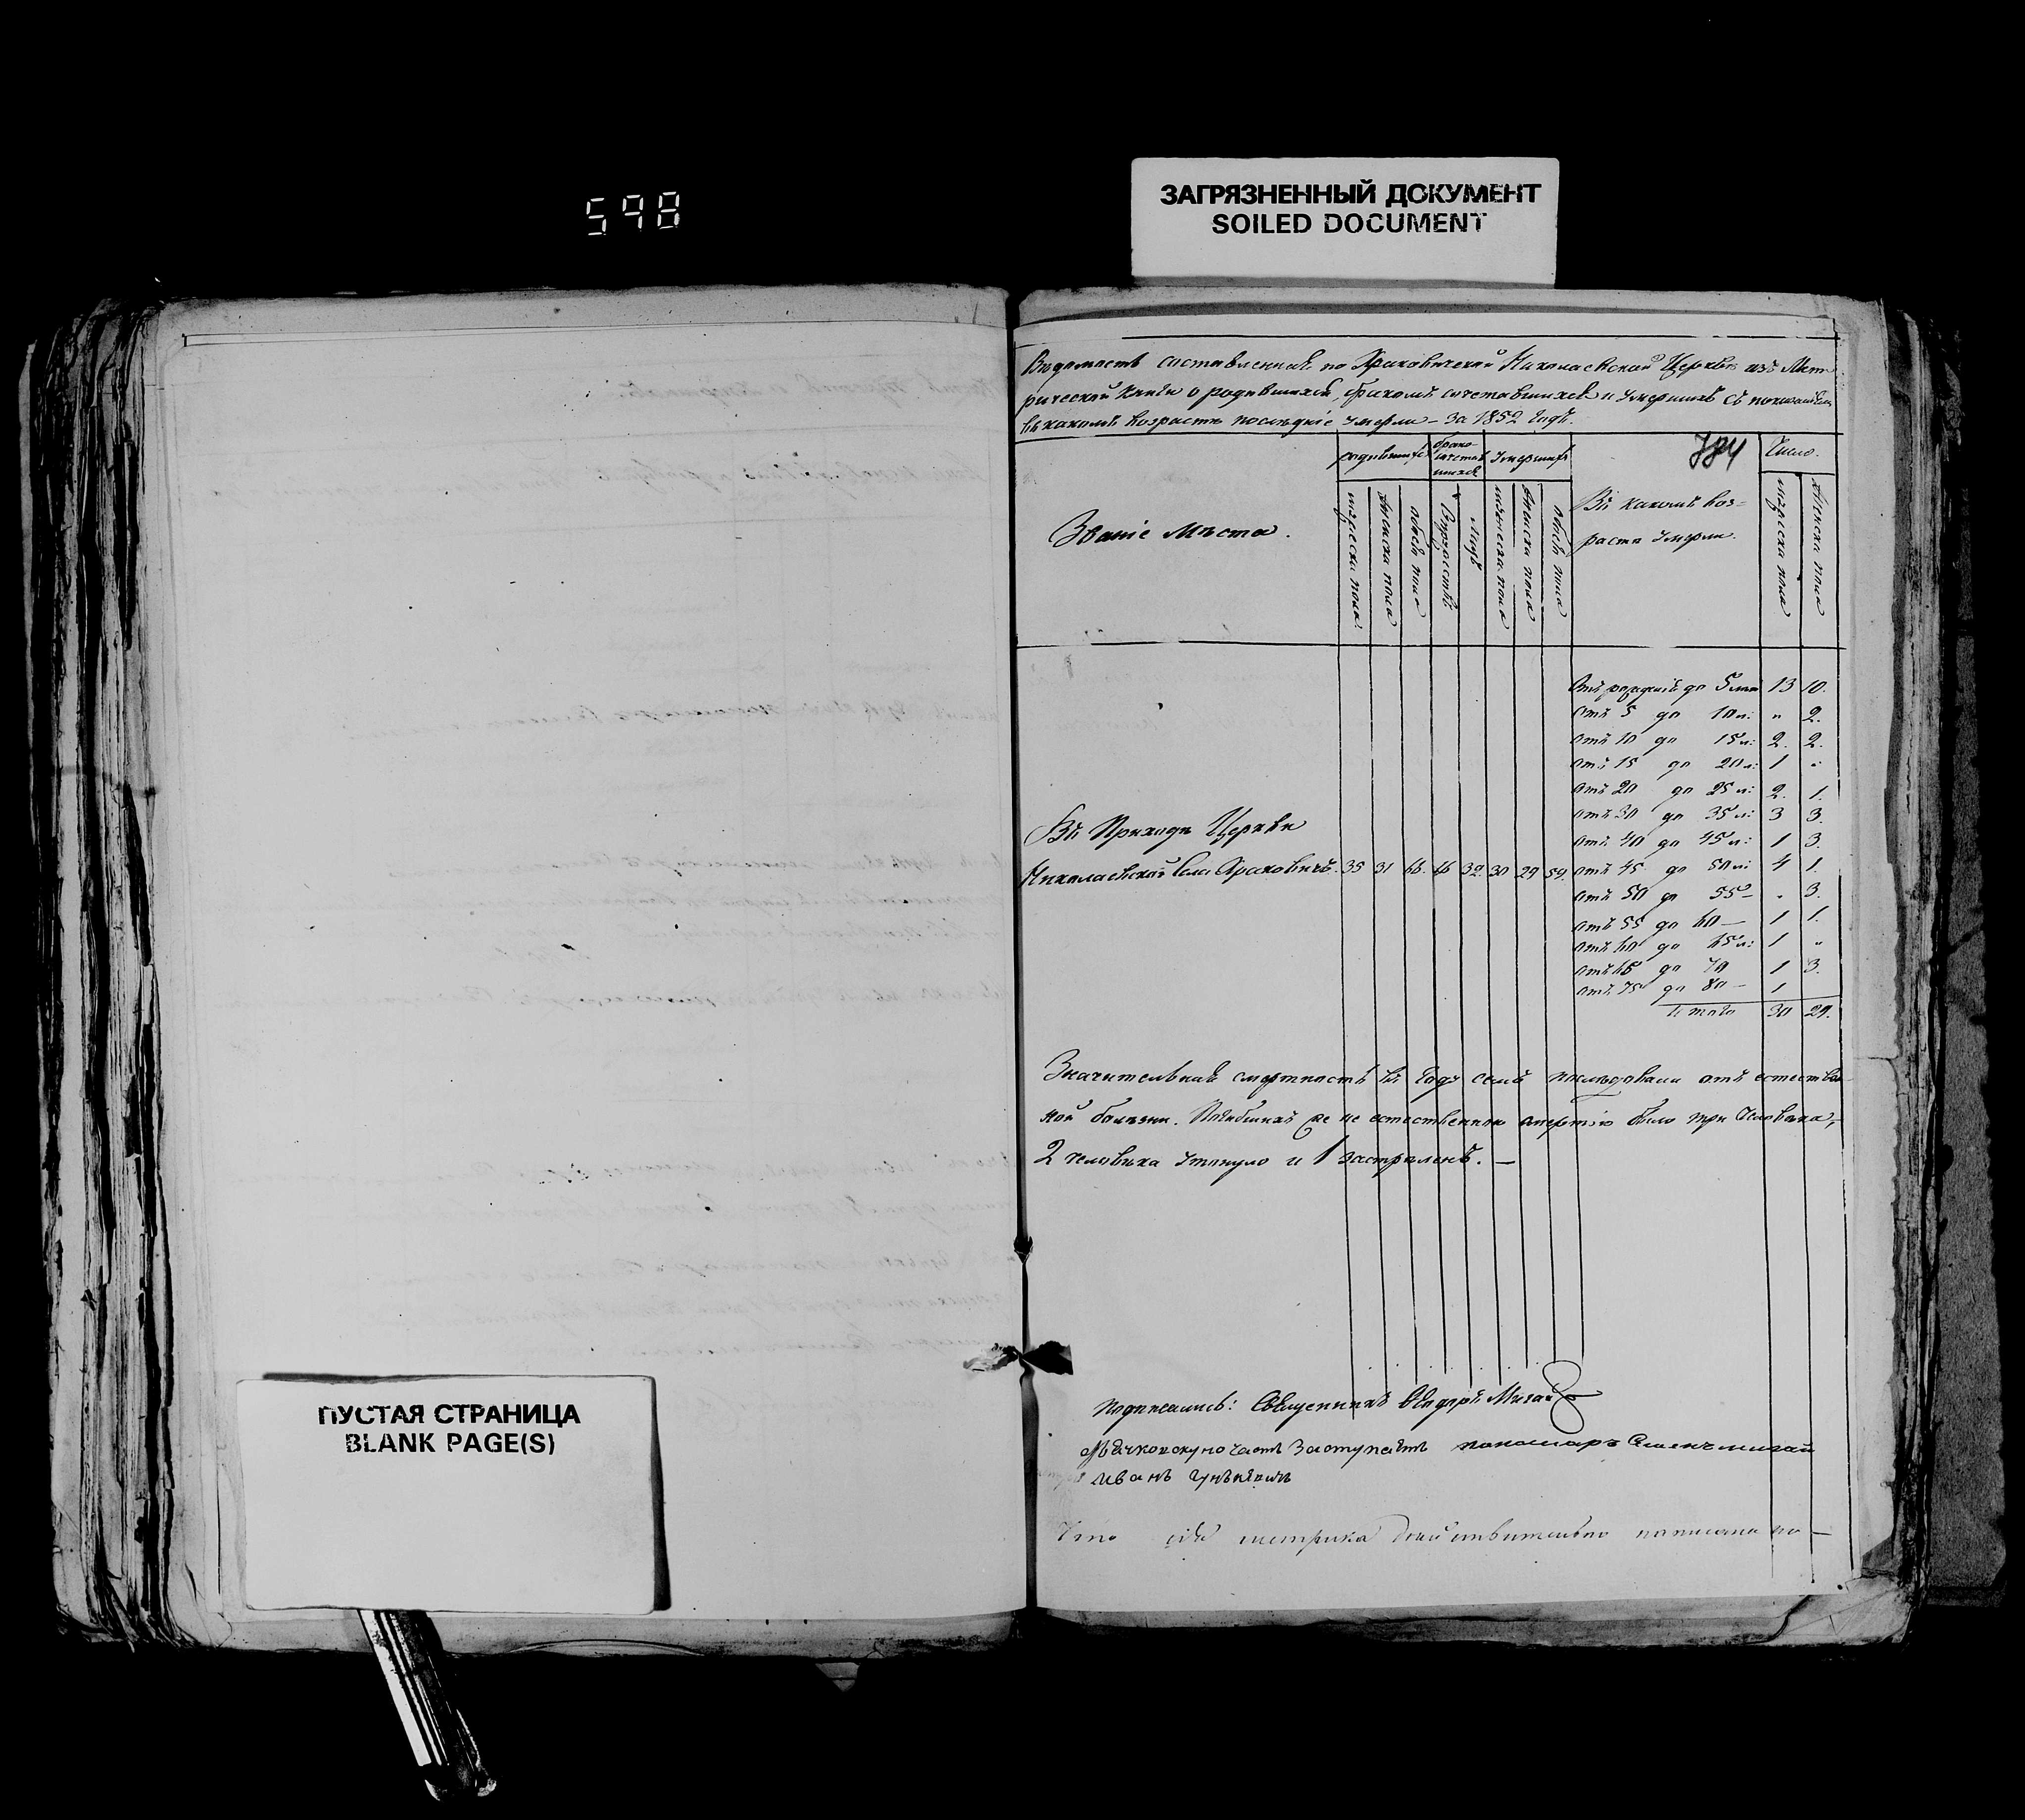 598
ЗАГРЯЗНЕННЫЙ ДОКУМЕНТ
SOILED DOCUMENT
Вѣдомость составленная по Храковичской Николаевской Церкви изъ Мет-
рической Книги о родившихся, бракомъ сочетавшихся и умершихъ съ показаніемъ
въ какомъ возрастѣ послѣдніе умерли – За 1852 Годъ.
Званіе Мѣста.
родившихся
брако-
сочетав
шихся
умершихъ
Въ какомъ воз-
растѣ умерли.
Число.
мужеска пола
женска пола
обоего пола
Супружествъ
Лицъ
мужеска пола
женска пола
обоего пола
мужеска пола
женска пола
Отъ рожденія до 5 лѣтъ 13 10.
отъ 5 до 10 л: „ 2.
отъ 10 до 15 л: 2. 2.
отъ 15 до 20 л: 1 „
отъ 20 до 25 л: 2. 1.
отъ 30 до 35 л: 3 3.
отъ 40 до 45 л: 1 3.
Въ Приходѣ Церкви
Николаевской Села Храковичъ. 35 31 66. 16 32. 30 29 59. отъ 45 до 50 л: 4 1.
отъ 50 до 55 – „ 3.
отъ 55 до 60 – 1 1.
отъ 60 до 65 л: 1 „
отъ 65 до 70 1 3.
отъ 75 до 80 – 1
Итого 30 29.
Значительная смертность въ Году семъ послѣдовала отъ естествен-
ной болѣзни. Погибшихъ же не естественною смертію было три Человека,
2 человѣка утонуло и 1 застреленъ. –
Подписались: Священникъ
заступаетъ пономаръ
Иванъ
Что сія метрика действительно писана по –
ПУСТАЯ СТРАНИЦА
BLANK PAGE(S)